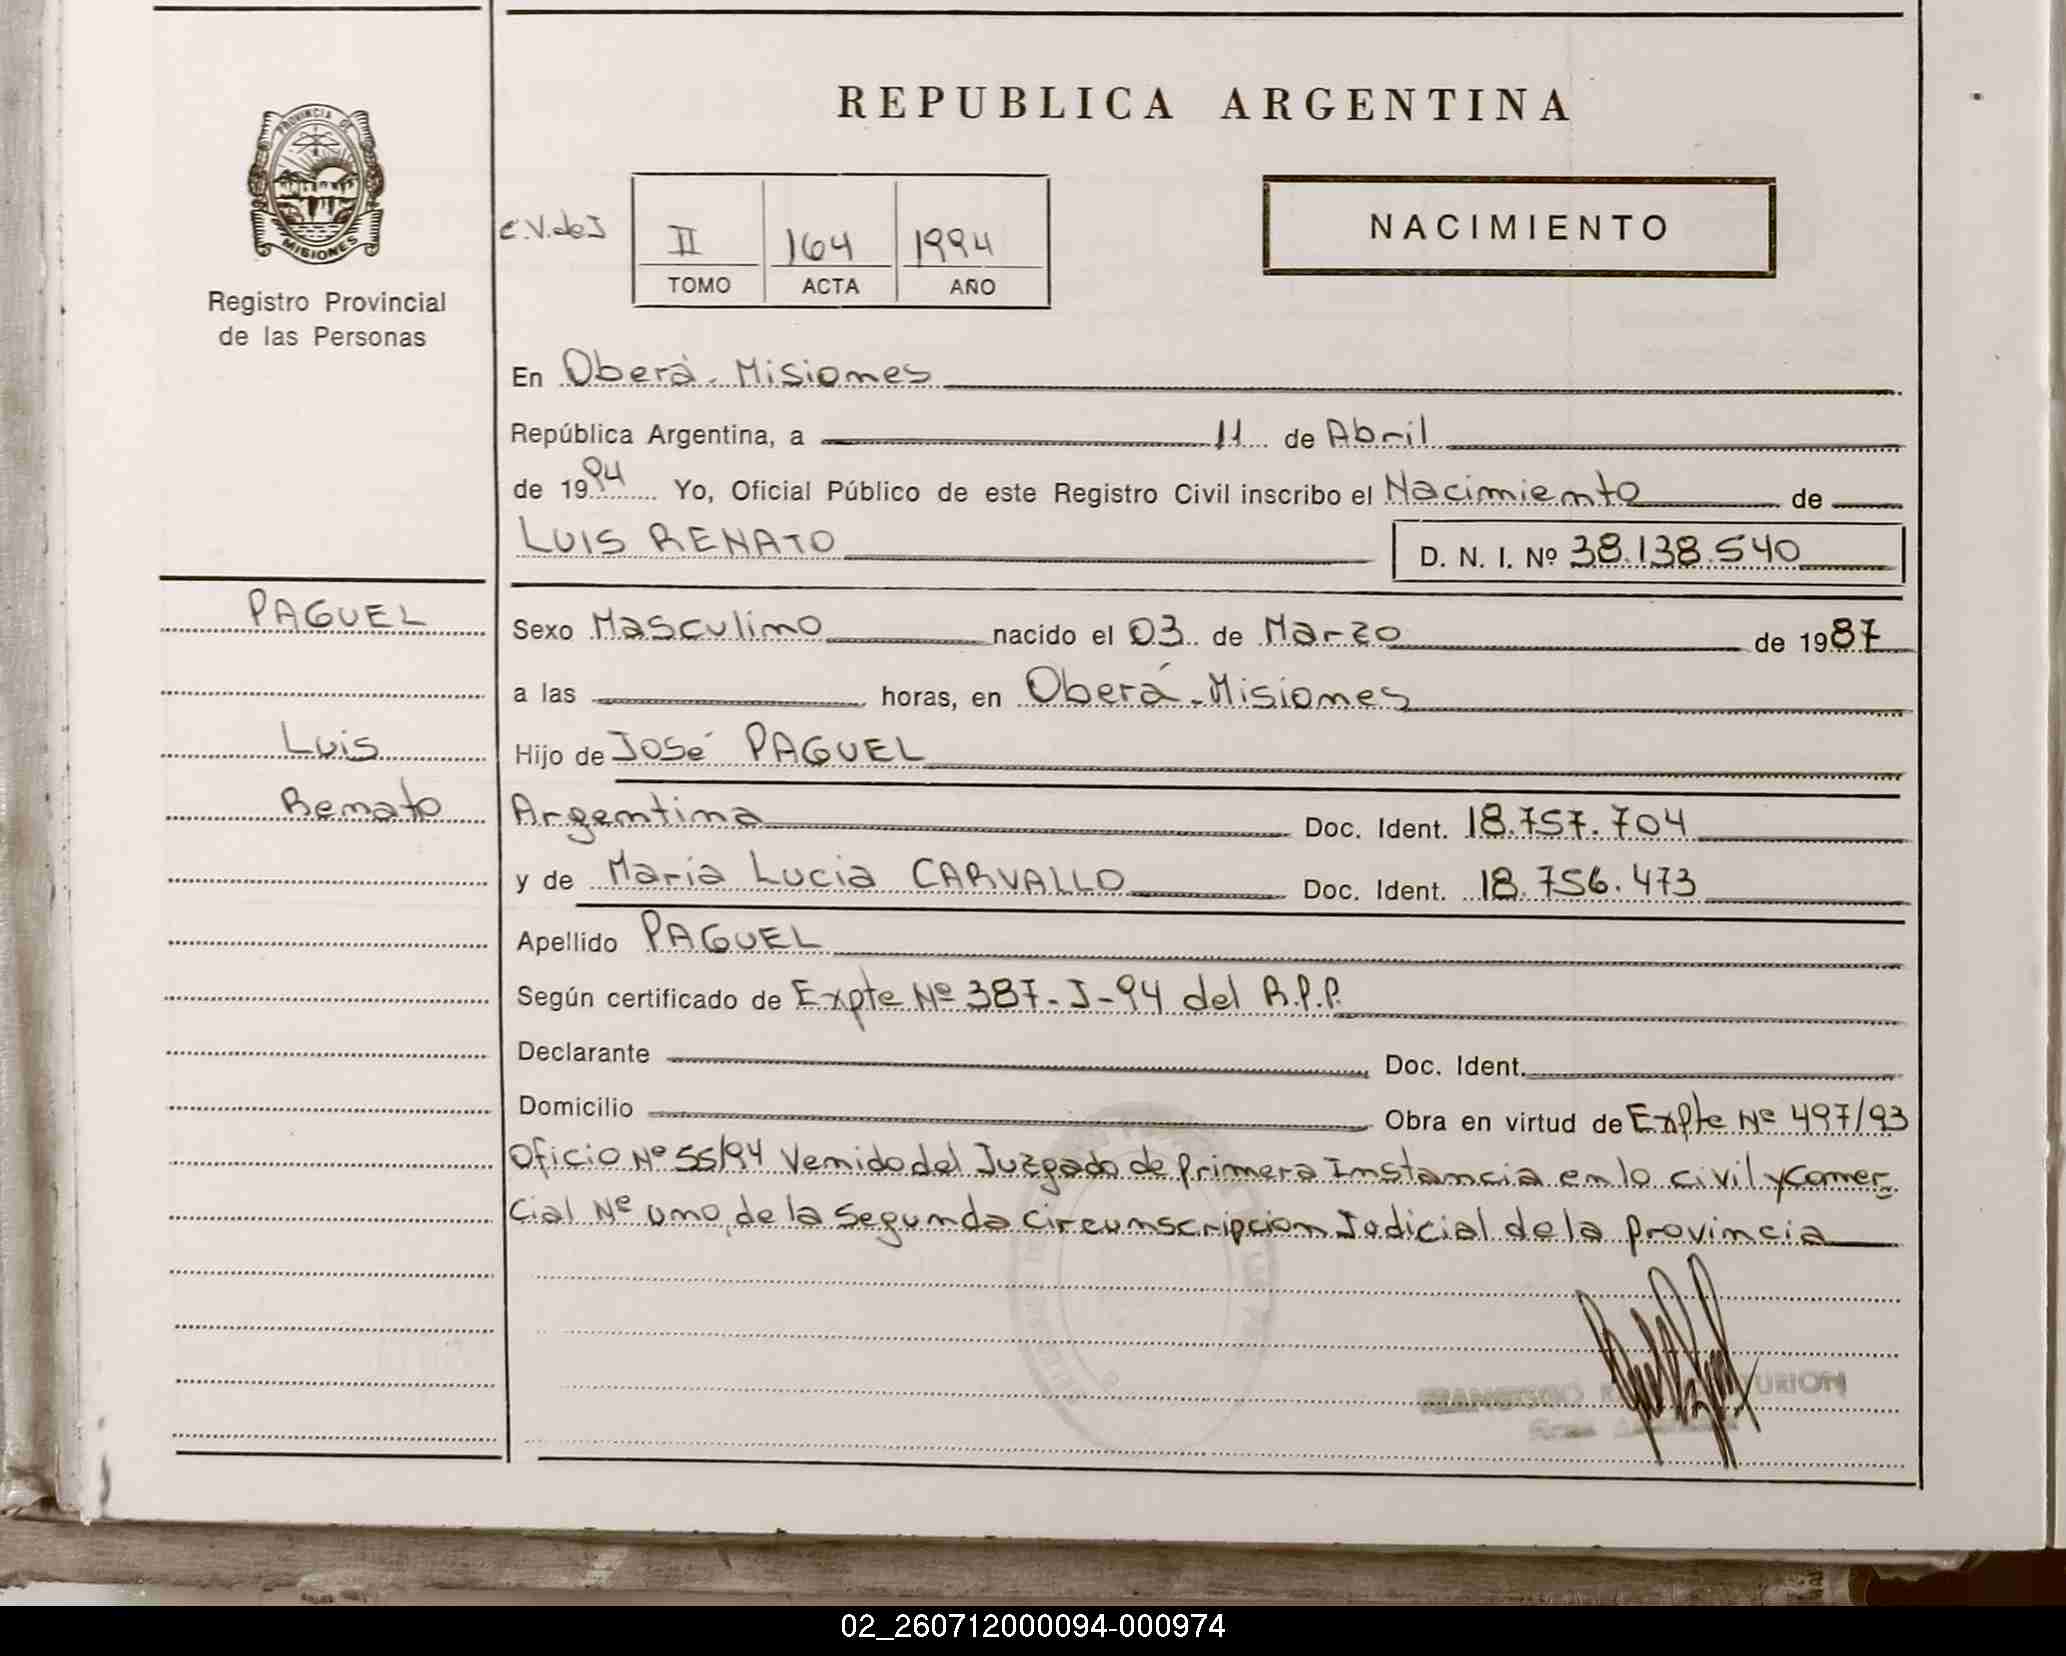 REPUBLICA ARGENTINA
PROVINCIA DE
MISIONES
Registro Provincial
de las Personas
C.V.deJ
II 164 1994
TOMO ACTA AÑO
NACIMIENTO
En Oberá - Misiones
República Argentina, a 11 de Abril
de 1994 Yo, Oficial Público de este Registro Civil inscribo el Nacimiento de
LUIS RENATO D. N. I. Nº 38.138.540
PAGUEL
Luis
Renato
Sexo Masculino nacido el 03 de Marzo de 1987
a las horas, en Oberá - Misiones
Hijo de José PAGUEL
Argentina Doc. Ident. 18.757.704
y de María Lucia CARVALLO Doc. Ident. 18.756.473
Apellido PAGUEL
Según certificado de Expte Nº 387-J-94 del R.P.P.
Declarante Doc. Ident.
Domicilio Obra en virtud de Expte Nº 497/93
Oficio Nº 55/94 Venido del Juzgado de primera Instancia en lo civil y comer-
cial Nº uno, de la segunda circunscripcion Judicial de la provincia
02_260712000094-000974